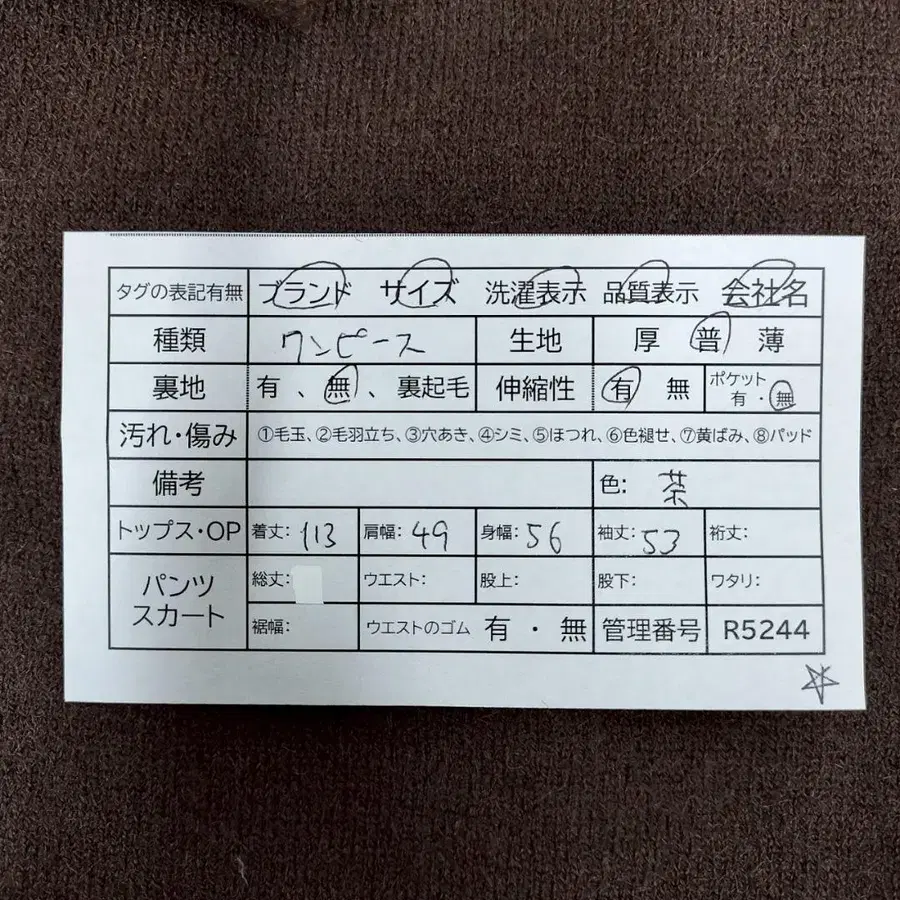 タグの表記有無 ブランド サイズ 洗濯表示 品質表示 会社名
種類 ワンピース 生地 厚 普 薄
裏地 有 、無 、裏起毛 伸縮性 有 無 ポケット 有・無
汚れ・傷み ①毛玉、②毛羽立ち、③穴あき、④シミ、⑤ほつれ、⑥色褪せ、⑦黄ばみ、⑧パッド
備考 色: 茶
トップス・OP 着丈: 113 肩幅: 49 身幅: 56 袖丈: 53 裄丈:
パンツ スカート 総丈: ウエスト: 股上: 股下: ワタリ:
裾幅: ウエストのゴム 有・無 管理番号 R5244